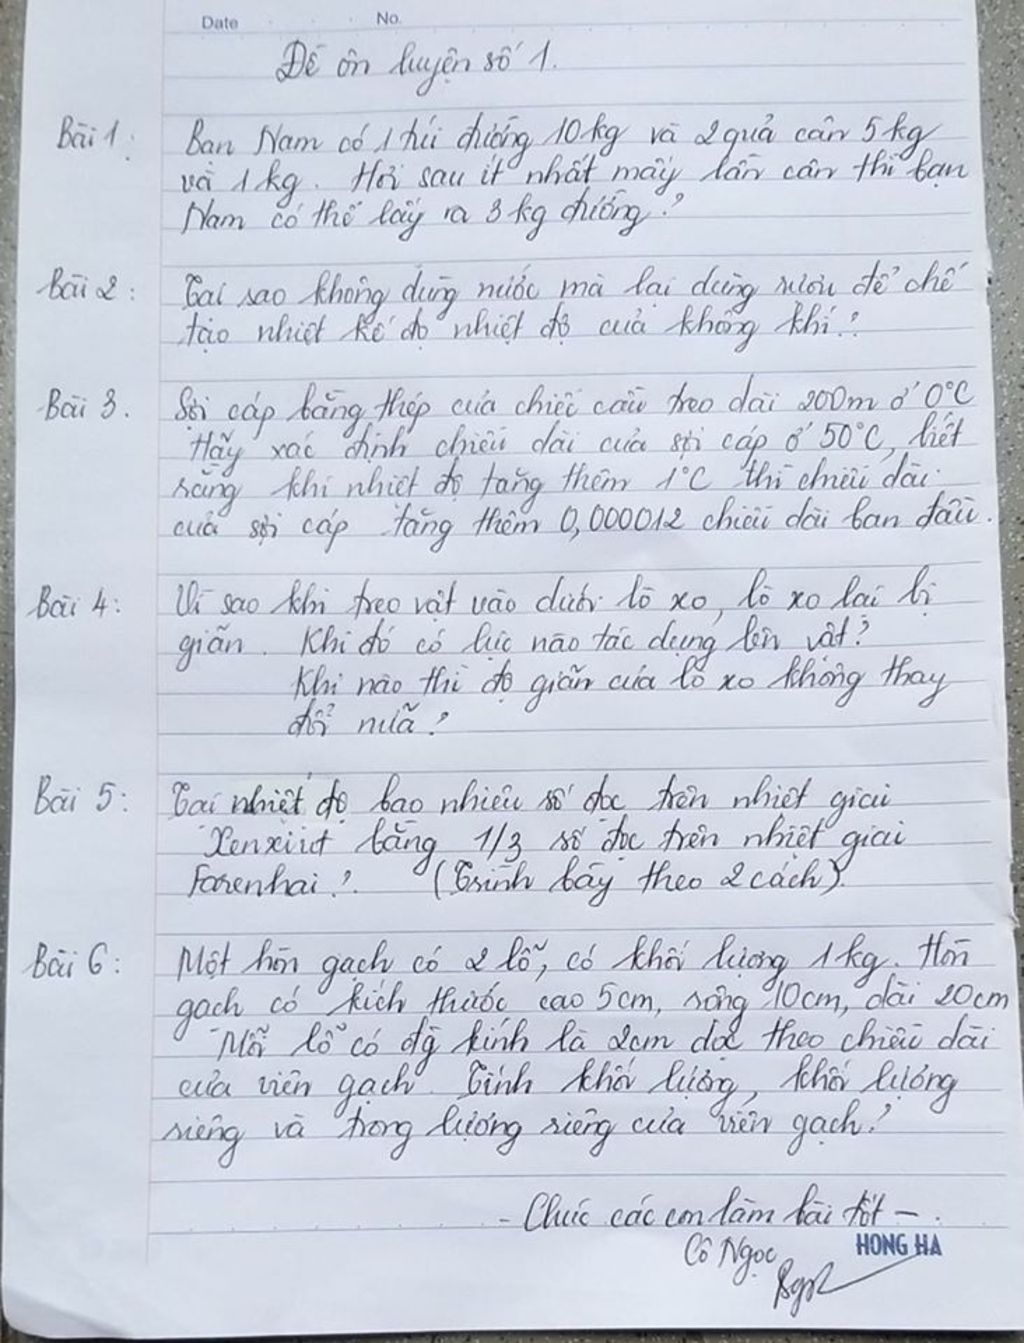 Date No.
Đề ôn luyện số 1.
Bài 1: Bạn Nam có 1 túi đường 10 kg và 2 quả cân 5 kg
và 1 kg. Hỏi sau ít nhất mấy lần cân thì bạn
Nam có thể lấy ra 3 kg đường?
Bài 2: Tại sao không dùng nước mà lại dùng rượu để chế
tạo nhiệt kế đo nhiệt độ của không khí?
Bài 3. Sợi cáp bằng thép của chiếc cầu treo dài 200m ở 0°C
Hãy xác định chiều dài của sợi cáp ở 50°C, biết
rằng khi nhiệt độ tăng thêm 1°C thì chiều dài
của sợi cáp tăng thêm 0,000012 chiều dài ban đầu.
Bài 4: Vì sao khi treo vật vào dưới lò xo, lò xo lại bị
giãn. Khi đó có lực nào tác dụng lên vật?
Khi nào thì độ giãn của lò xo không thay
đổi nữa?
Bài 5: Tại nhiệt độ bao nhiêu số đọc trên nhiệt giai
Xenxiut bằng 1/3 số đọc trên nhiệt giai
Farenhai? (Trình bày theo 2 cách).
Bài 6: Một hòn gạch có 2 lỗ, có khối lượng 1 kg. Hòn
gạch có kích thước cao 5cm, rộng 10cm, dài 20cm
Mỗi lỗ có đg kính là 2cm dọc theo chiều dài
của viên gạch. Tính khối lượng, khối lượng
riêng và trọng lượng riêng của viên gạch?
- Chúc các con làm bài tốt -.
Cô Ngọc
HONG HA